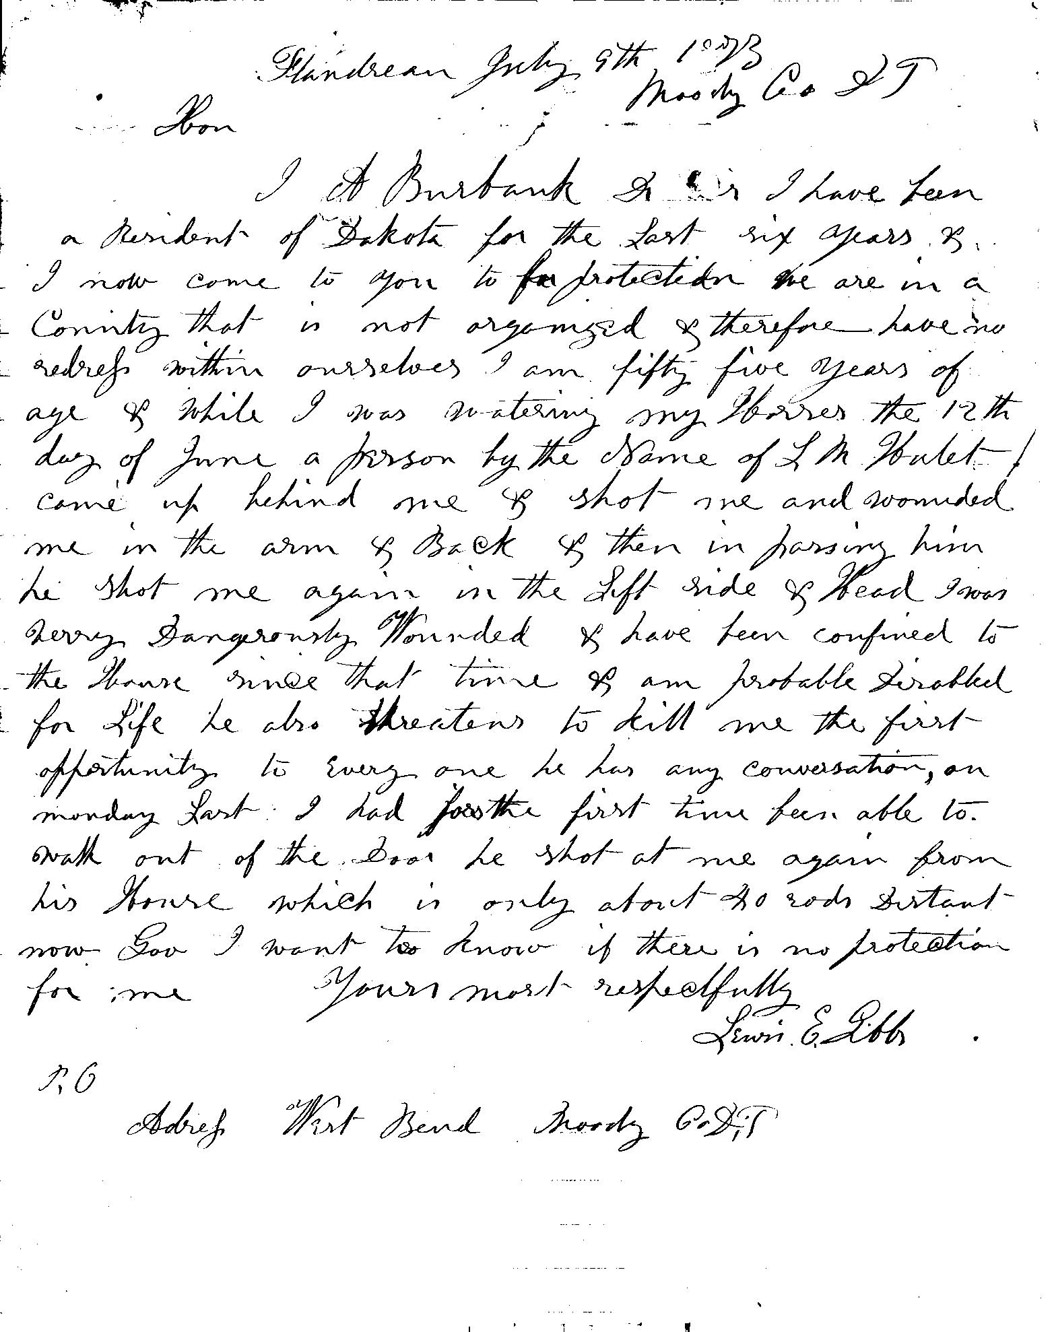 Flandreau July 9th 1873
Moody Co D T
Hon
J A Burbank Dr Sir I have been
a Resident of Dakota for the Last six years &
I now come to you to for protection we are in a
County that is not organized & therefore have no
redress within ourselves I am fifty five years of
age & while I was watering my Horses the 12th
day of June a person by the Name of L M Hulet
came up behind me & shot me and wounded
me in the arm & Back & then in passing him
he shot me again in the Left side & Head I was
verry Dangerously Wounded & have been confined to
the House since that time & am probable Disabled
for Life he also threatens to kill me the first
opportunity to Every one he has any conversation, on
monday Last I had for the first time been able to
walk out of the Door he shot at me again from
his House which is only about 20 rods Distant
now Gov I want too know if there is no protection
for me Yours most respectfully
Lewis E. Gibbs
P. O
Adress West Bend Moody Co D,T